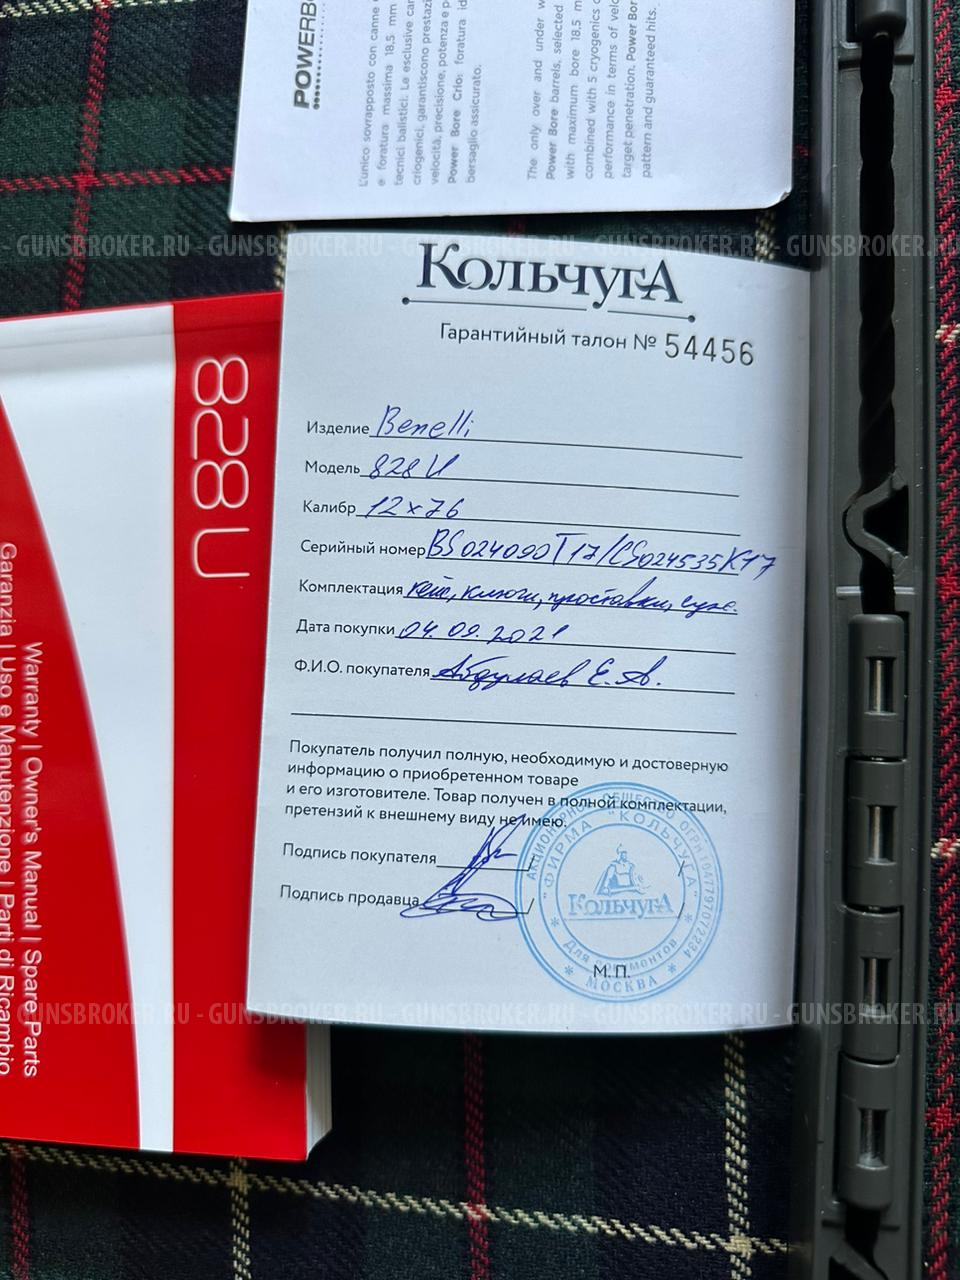 POWERBO
L'unico sovrapposto con canne
e foratura massima 18,5 mm
tecnici balistici. Le esclusive can
criogenici, garantiscono prestazi
velocità, precisione, potenza e p
Power Bore Crio: foratura id
bersaglio assicurato.
The only over and under w
Power Bore barrels, selected
with maximum bore 18,5 m
combined with 5 cryogenics c
performance in terms of velo
target penetration. Power Bor
pattern and guaranteed hits.
GUNSBROKER.RU - GUNSBROKER.RU - GUNSBROKER.RU - GUNSBROKER.RU - GUNSBROKER.RU
КОЛЬЧУГА
Гарантийный талон № 54456
Изделие Benelli
Модель 828 U
Калибр 12x76
Серийный номер BS024090T17/CS024535K17
Комплектация кейс, ключи, проставки,
Дата покупки 04.09.2021
Ф.И.О. покупателя Абдулаев Е.А.
Покупатель получил полную, необходимую и достоверную
информацию о приобретенном товаре
и его изготовителе. Товар получен в полной комплектации,
претензий к внешнему виду не имею.
Подпись покупателя / /
Подпись продавца / /
М.П.
АКЦИОНЕРНОЕ ОБЩЕСТВО ОГРН 1047797072234
* МОСКВА *
"ФИРМА "КОЛЬЧУГА"
КОЛЬЧУГА
* Для документов *
828U
Warranty | Owner's Manual | Spare Parts
Garanzia | Uso e Manutenzione | Parti di Ricambio
GUNSBROKER.RU - GUNSBROKER.RU - GUNSBROKER.RU - GUNSBROKER.RU - GUNSBROKER.RU